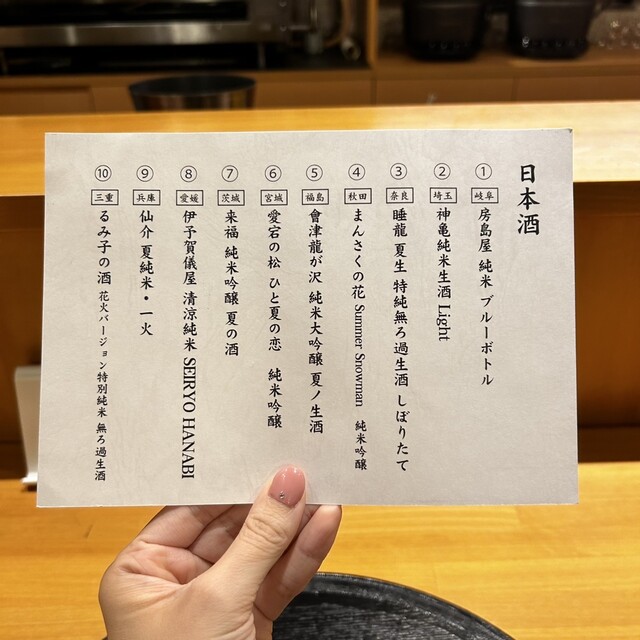 日本酒
① 岐阜 房島屋 純米 ブルーボトル
② 埼玉 神亀純米生酒 Light
③ 奈良 睡龍 夏生 特純無ろ過生酒 しぼりたて
④ 秋田 まんさくの花 Summer Snowman 純米吟醸
⑤ 福島 會津龍が沢 純米大吟醸 夏ノ生酒
⑥ 宮城 愛宕の松 ひと夏の恋 純米吟醸
⑦ 茨城 来福 純米吟醸 夏の酒
⑧ 愛媛 伊予賀儀屋 清涼純米 SEIRYO HANABI
⑨ 兵庫 仙介 夏純米・一火
⑩ 三重 るみ子の酒 花火バージョン特別純米 無ろ過生酒